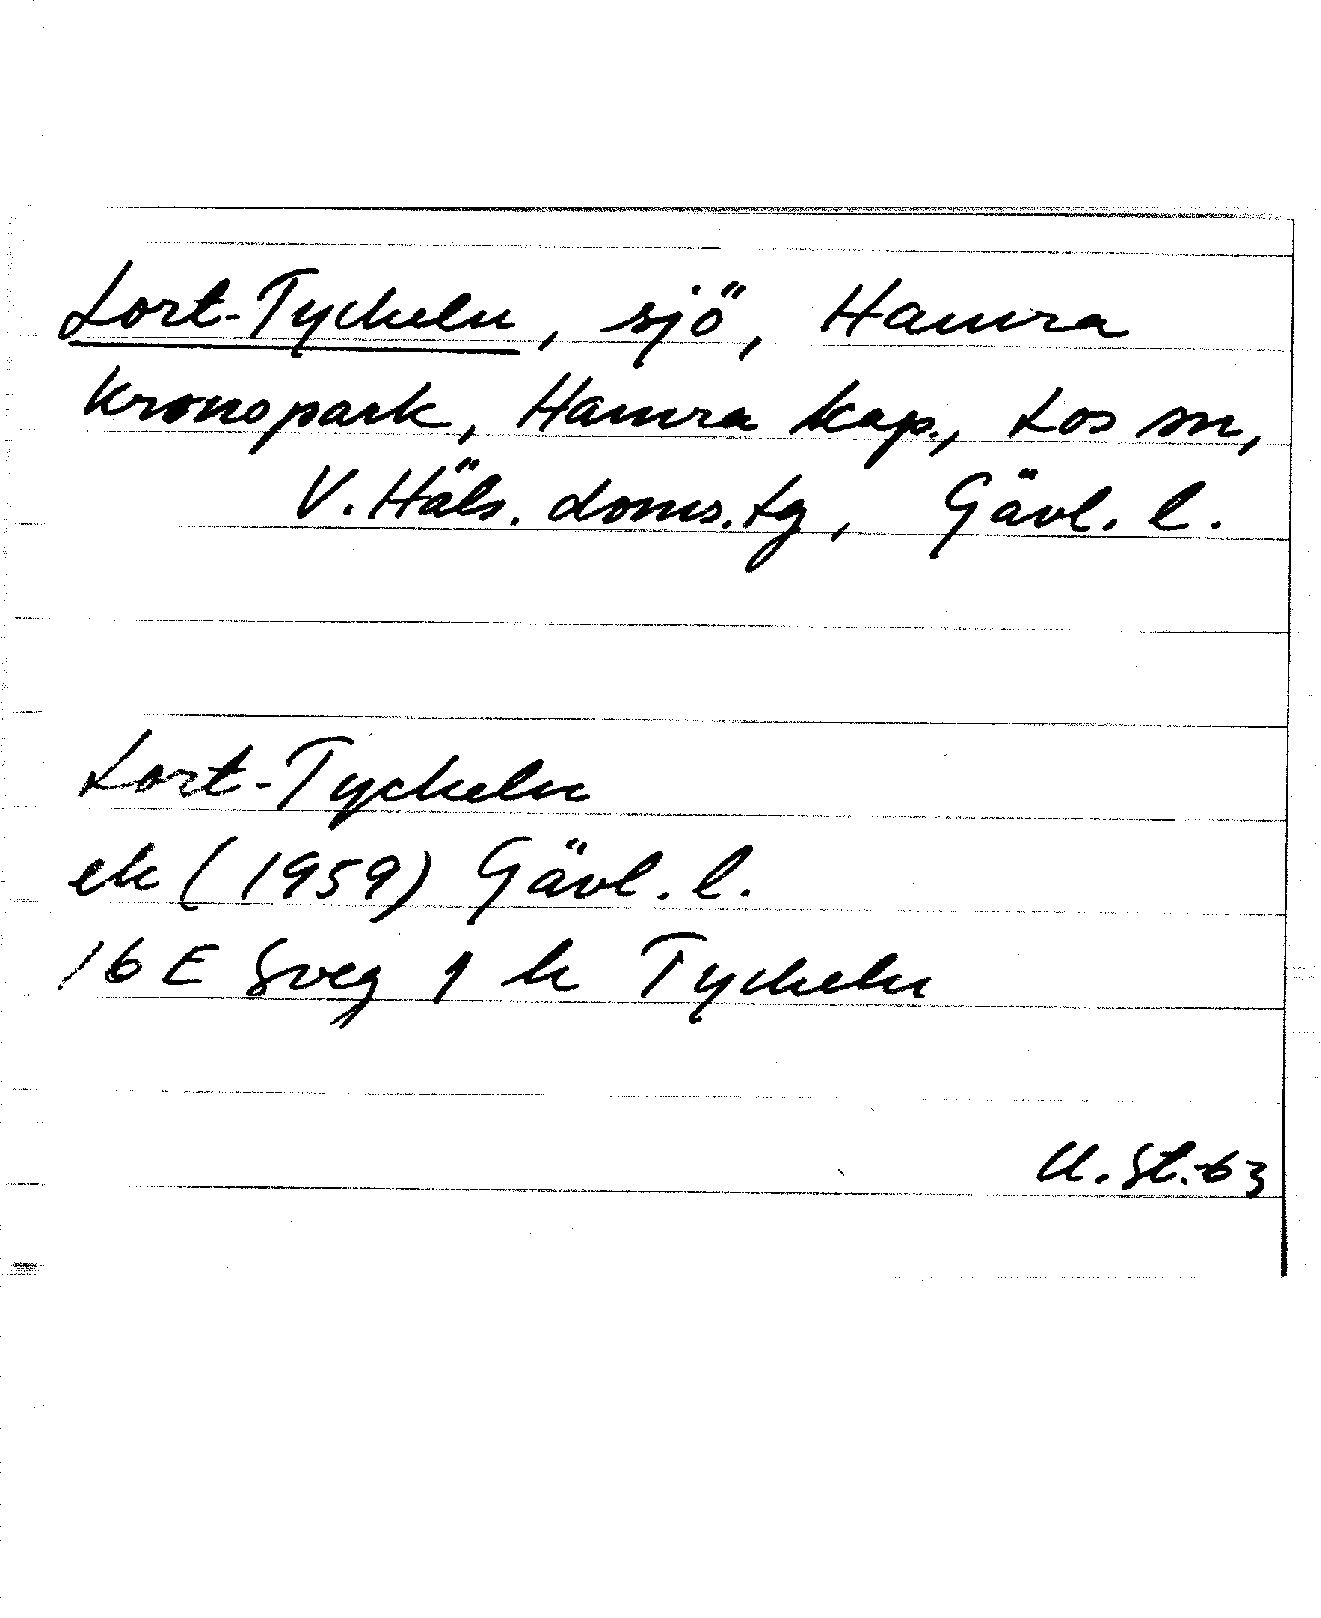 Lort-Tyckeln, sjö, Hamra
kronopark, Hamra kap., Los sn,
V. Häls. doms.tg, Gävl. l.
Lort-Tyckeln
ek (1959) Gävl. l.
16 E Sveg 1 h Tyckeln
U. St. -63